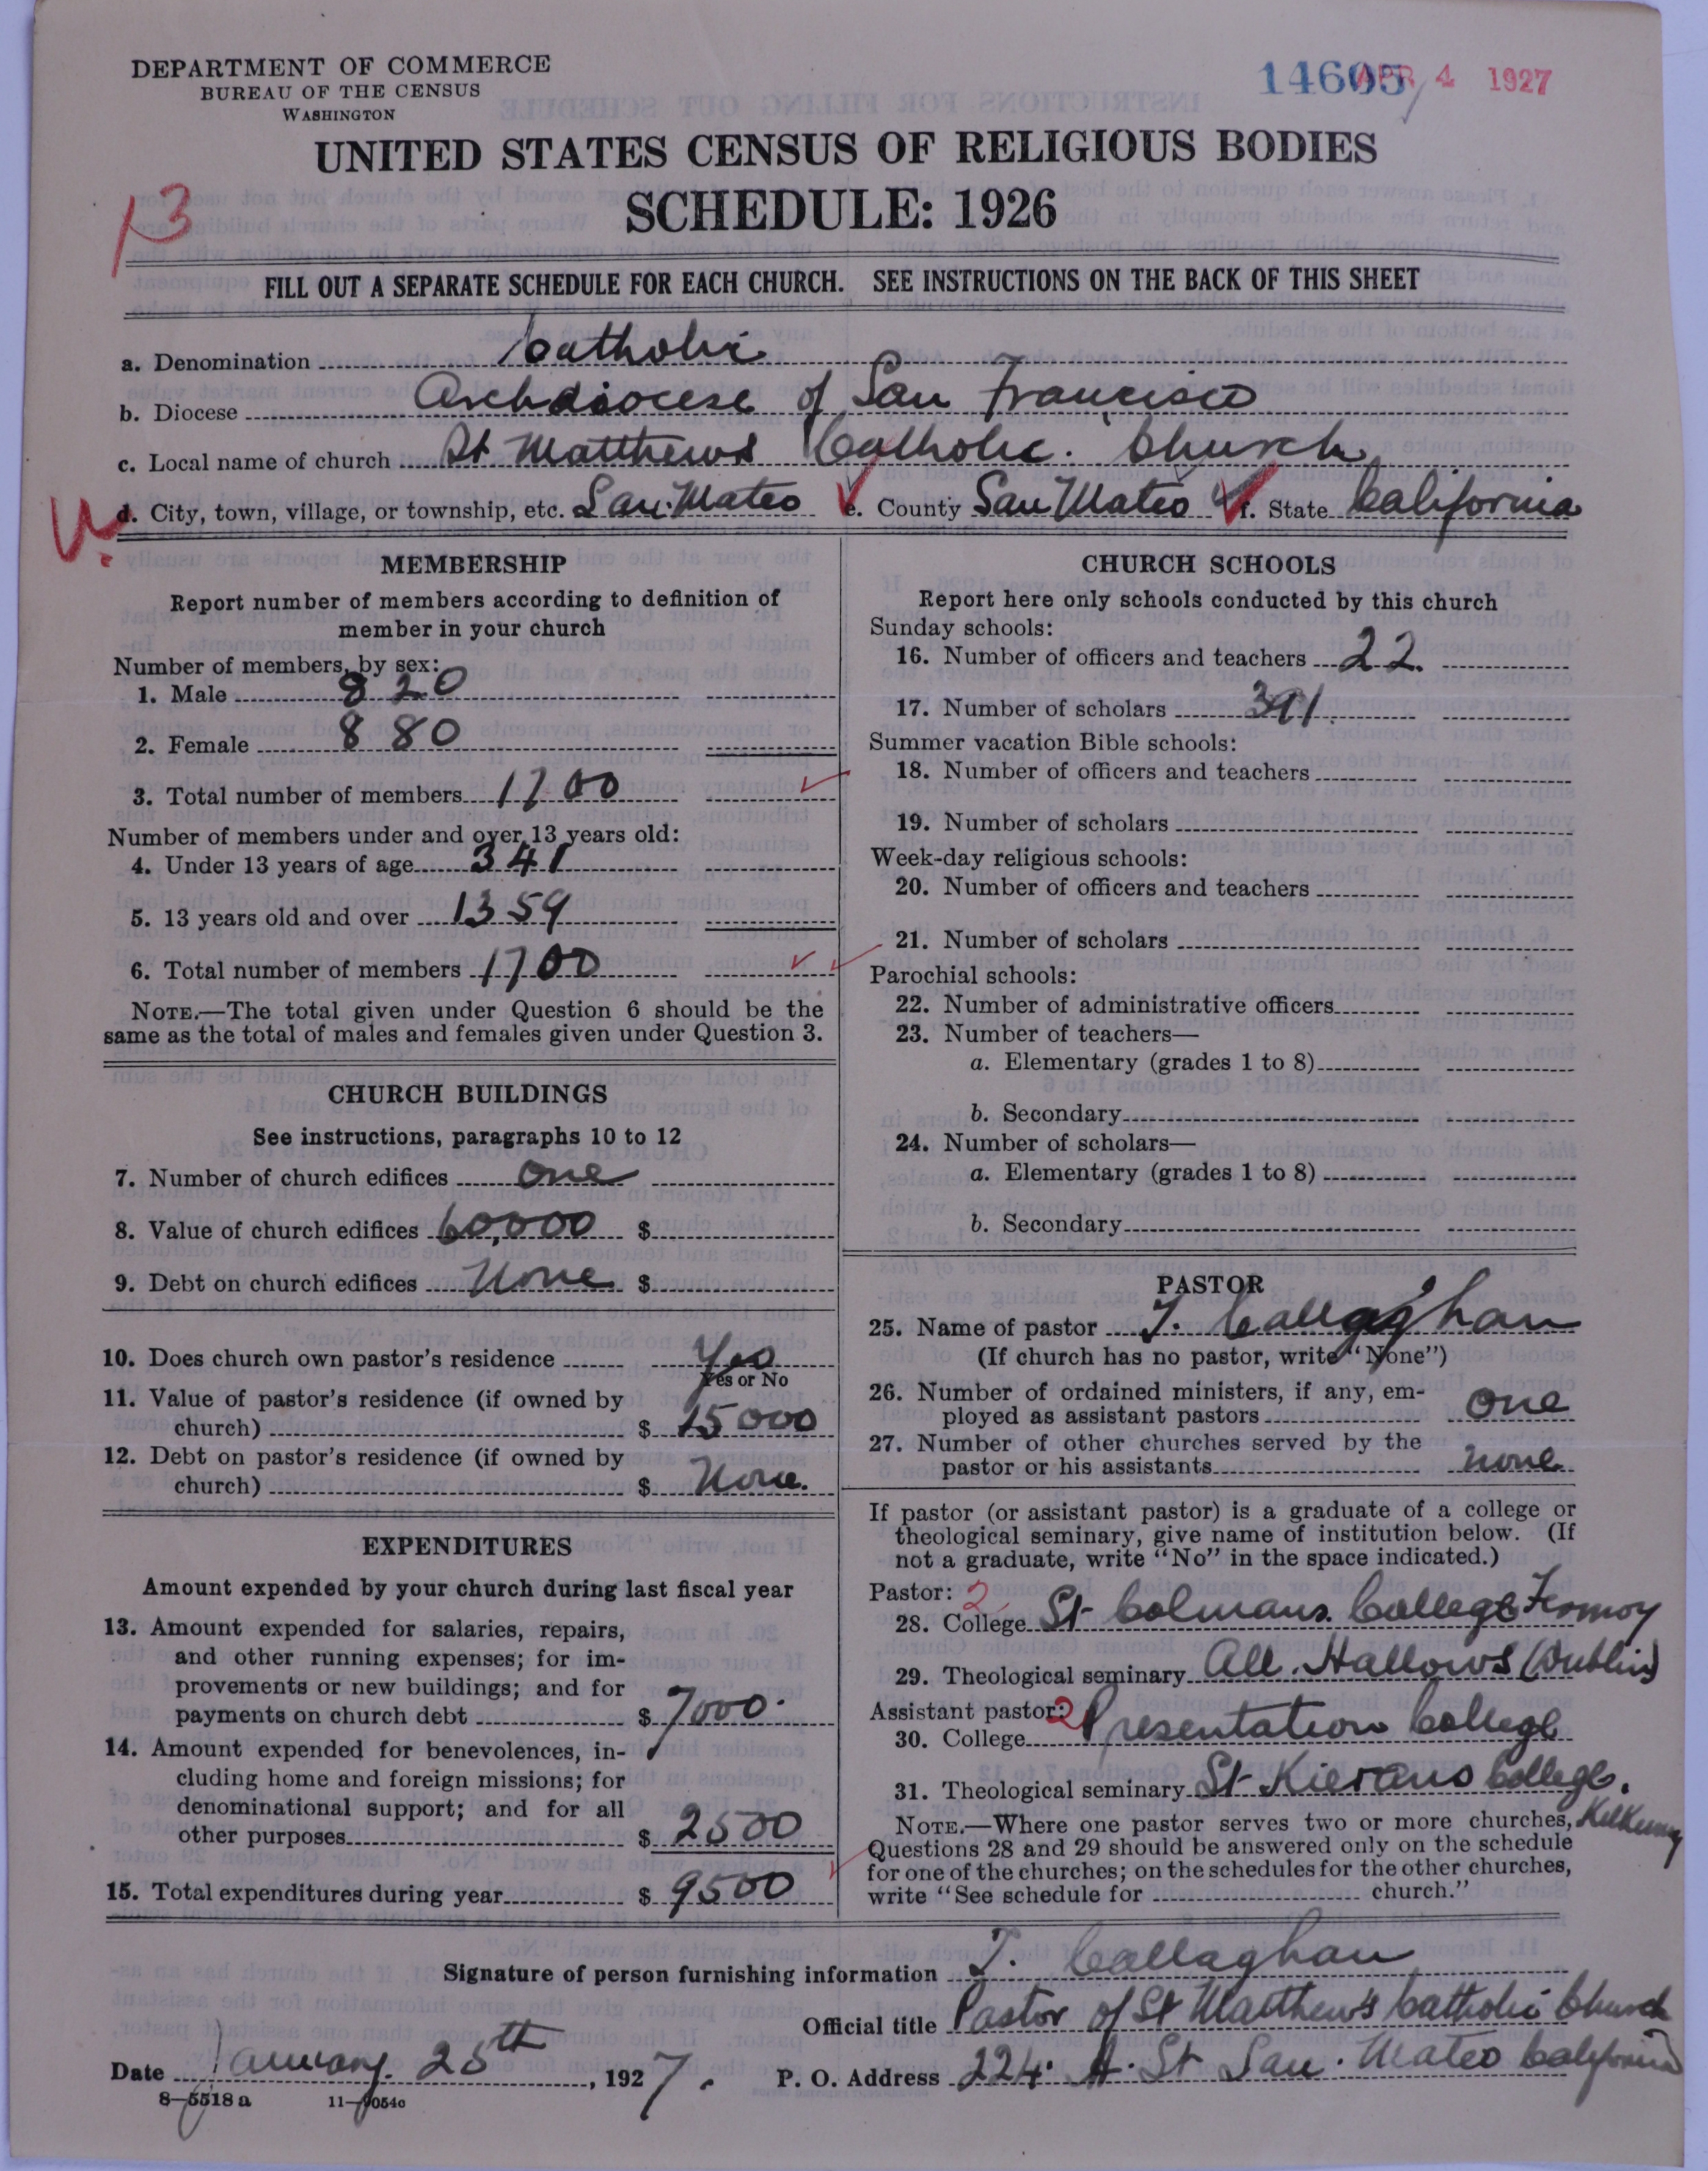 DEPARTMENT OF COMMERCE
BUREAU OF THE CENSUS
WASHINGTON
14605 APR 4 1927
UNITED STATES CENSUS OF RELIGIOUS BODIES
SCHEDULE: 1926
13
FILL OUT A SEPARATE SCHEDULE FOR EACH CHURCH. SEE INSTRUCTIONS ON THE BACK OF THIS SHEET
a. Denomination Catholic
b. Diocese Archdiocese of San Francisco
c. Local name of church St Matthews Catholic. Church
d. City, town, village, or township, etc. San Mateo e. County San Mateo f. State California
MEMBERSHIP
Report number of members according to definition of
member in your church
Number of members, by sex:
1. Male 820
2. Female 880
3. Total number of members 1700
Number of members under and over 13 years old:
4. Under 13 years of age 341
5. 13 years old and over 1359
6. Total number of members 1700
NOTE.—The total given under Question 6 should be the
same as the total of males and females given under Question 3.
CHURCH BUILDINGS
See instructions, paragraphs 10 to 12
7. Number of church edifices one
8. Value of church edifices 60,000 $
9. Debt on church edifices None $
10. Does church own pastor's residence Yes
Yes or No
11. Value of pastor's residence (if owned by
church) $ 15000
12. Debt on pastor's residence (if owned by
church) $ None.
EXPENDITURES
Amount expended by your church during last fiscal year
13. Amount expended for salaries, repairs,
and other running expenses; for im-
provements or new buildings; and for
payments on church debt $ 7000.
14. Amount expended for benevolences, in-
cluding home and foreign missions; for
denominational support; and for all
other purposes $ 2500
15. Total expenditures during year $ 9500
CHURCH SCHOOLS
Report here only schools conducted by this church
Sunday schools:
16. Number of officers and teachers 22.
17. Number of scholars 391.
Summer vacation Bible schools:
18. Number of officers and teachers
19. Number of scholars
Week-day religious schools:
20. Number of officers and teachers
21. Number of scholars
Parochial schools:
22. Number of administrative officers
23. Number of teachers—
a. Elementary (grades 1 to 8)
b. Secondary
24. Number of scholars—
a. Elementary (grades 1 to 8)
b. Secondary
PASTOR
25. Name of pastor T. Callaghan
(If church has no pastor, write "None")
26. Number of ordained ministers, if any, em-
ployed as assistant pastors one
27. Number of other churches served by the
pastor or his assistants none
If pastor (or assistant pastor) is a graduate of a college or
theological seminary, give name of institution below. (If
not a graduate, write "No" in the space indicated.)
Pastor: 2
28. College St Colmans. College Fermoy
29. Theological seminary All. Hallows (Dublin)
Assistant pastor: 2
30. College Presentation College
31. Theological seminary St Kierans College. Kilkenny
NOTE.—Where one pastor serves two or more churches,
Questions 28 and 29 should be answered only on the schedule
for one of the churches; on the schedules for the other churches,
write "See schedule for church."
Signature of person furnishing information T. Callaghan
Official title Pastor of St Matthew's Catholic Church
Date January 25th, 1927. P. O. Address 224. A. St San. Mateo California
8—5518 a 11—9054c